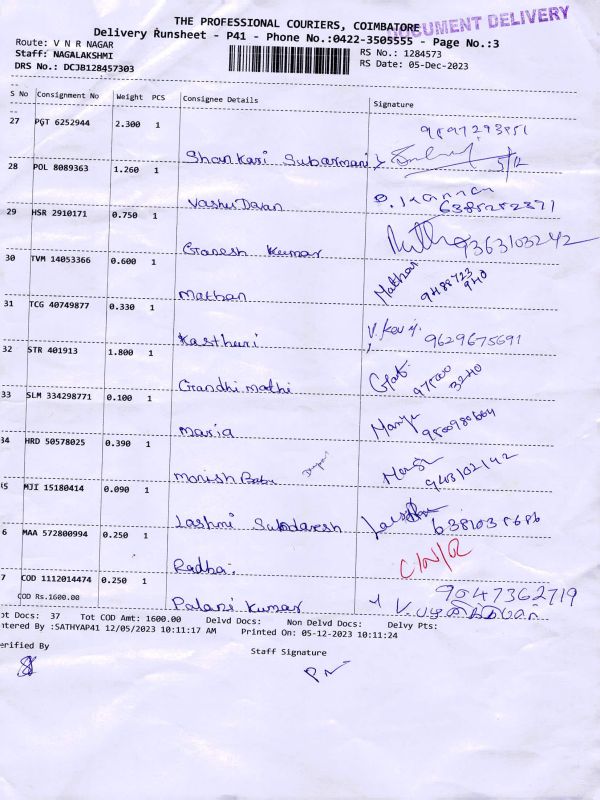 THE PROFESSIONAL COURIERS, COIMBATORE
DOCUMENT DELIVERY
Delivery Runsheet - P41 - Phone No.:0422-3505555 - Page No.:3
Route: V N R NAGAR
RS No.: 1284573
Staff: NAGALAKSHMI
RS Date: 05-Dec-2023
DRS No.: DCJB128457303
S No Consignment No Weight PCS Consignee Details Signature
27 PGT 6252944 2.300 1
Shankari Subarmani 5/12
28 POL 8089363 1.260 1
Vashu Devan
6385252371
29 HSR 2910171 0.750 1
Ganesh Kumar 9363103242
30 TVM 14053366 0.600 1
Mathan Mathan 9488723 940
31 TCG 40749877 0.330 1
Kasthuri 9629675691
32 STR 401913 1.800 1
Gandhi mathi 97500 3240
33 SLM 334298771 0.100 1
Maria
34 HRD 50578025 0.390 1
Monish Babu
5 MJI 15180414 0.090 1
Lashmi Sundaresh
6 MAA 572800994 0.250 1
Radha. C/N/R
7 COD 1112014474 0.250 1
COD Rs.1600.00
Palani Kumar 9047362719
ot Docs: 37 Tot COD Amt: 1600.00 Delvd Docs: Non Delvd Docs: Delvy Pts:
ntered By :SATHYAP41 12/05/2023 10:11:17 AM Printed On: 05-12-2023 10:11:24
erified By
Staff Signature